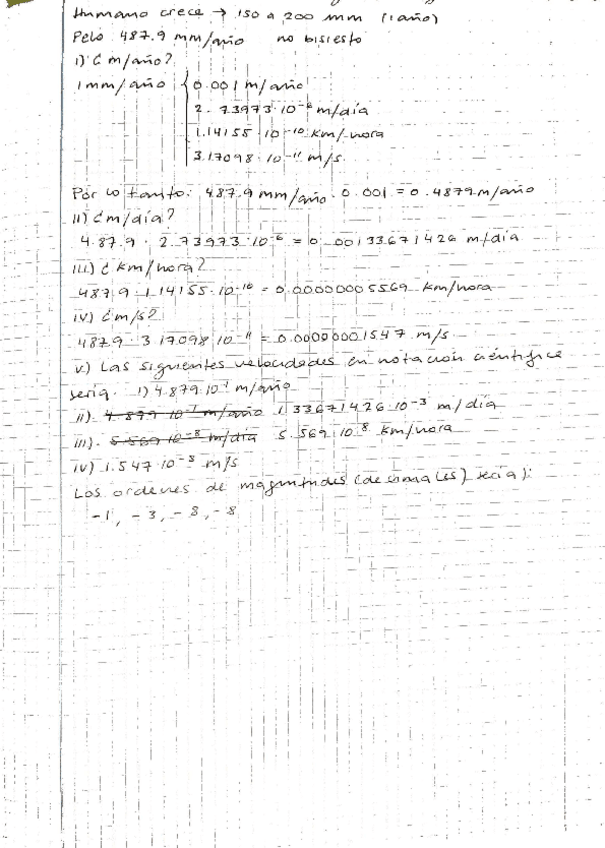 Humano crece → 150 a 200 mm (1 año)
Pelo 487.9 mm/año no bisiesto
i) ¿m/año?
1 mm/año { 0.001 m/año
2.73973·10⁻⁶ m/día
1.14155·10⁻¹⁰ km/hora
3.17098·10⁻¹¹ m/s
Por lo tanto: 487.9 mm/año · 0.001 = 0.4879 m/año
ii) ¿m/día?
487.9 · 2.73973·10⁻⁶ = 0.00133671426 m/día
iii) ¿km/hora?
487.9 1.14155·10⁻¹⁰ = 0.00000005569 km/hora
iv) ¿m/s?
487.9 3.17098·10⁻¹¹ = 0.00000001547 m/s
v.) Las siguientes velocidades en notación científica
sería. i) 4.879·10⁻¹ m/año
ii). 4.879 10⁻¹ m/año 1.33671426·10⁻³ m/día
iii). 5.569 10⁻⁸ m/día 5.569·10⁻⁸ km/hora
iv) 1.547·10⁻⁸ m/s
Los ordenes de magnitudes (decimales) sería):
-1, -3, -8, -8